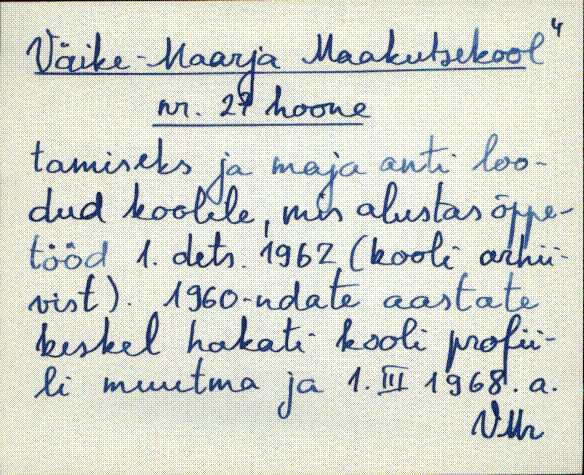 4
Väike-Maarja Maakutsekool
nr. 27 hoone
tamiseks ja maja anti loo-
dud koolile, mis alustas õppe-
tööd 1. dets. 1962 (kooli arhii-
vist). 1960-ndate aastate
keskel hakati kooli profii-
li muutma ja 1. III 1968. a.